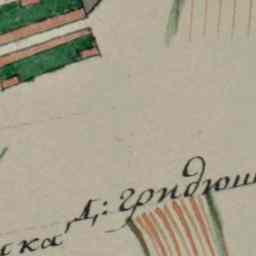 ска Д: гридюш